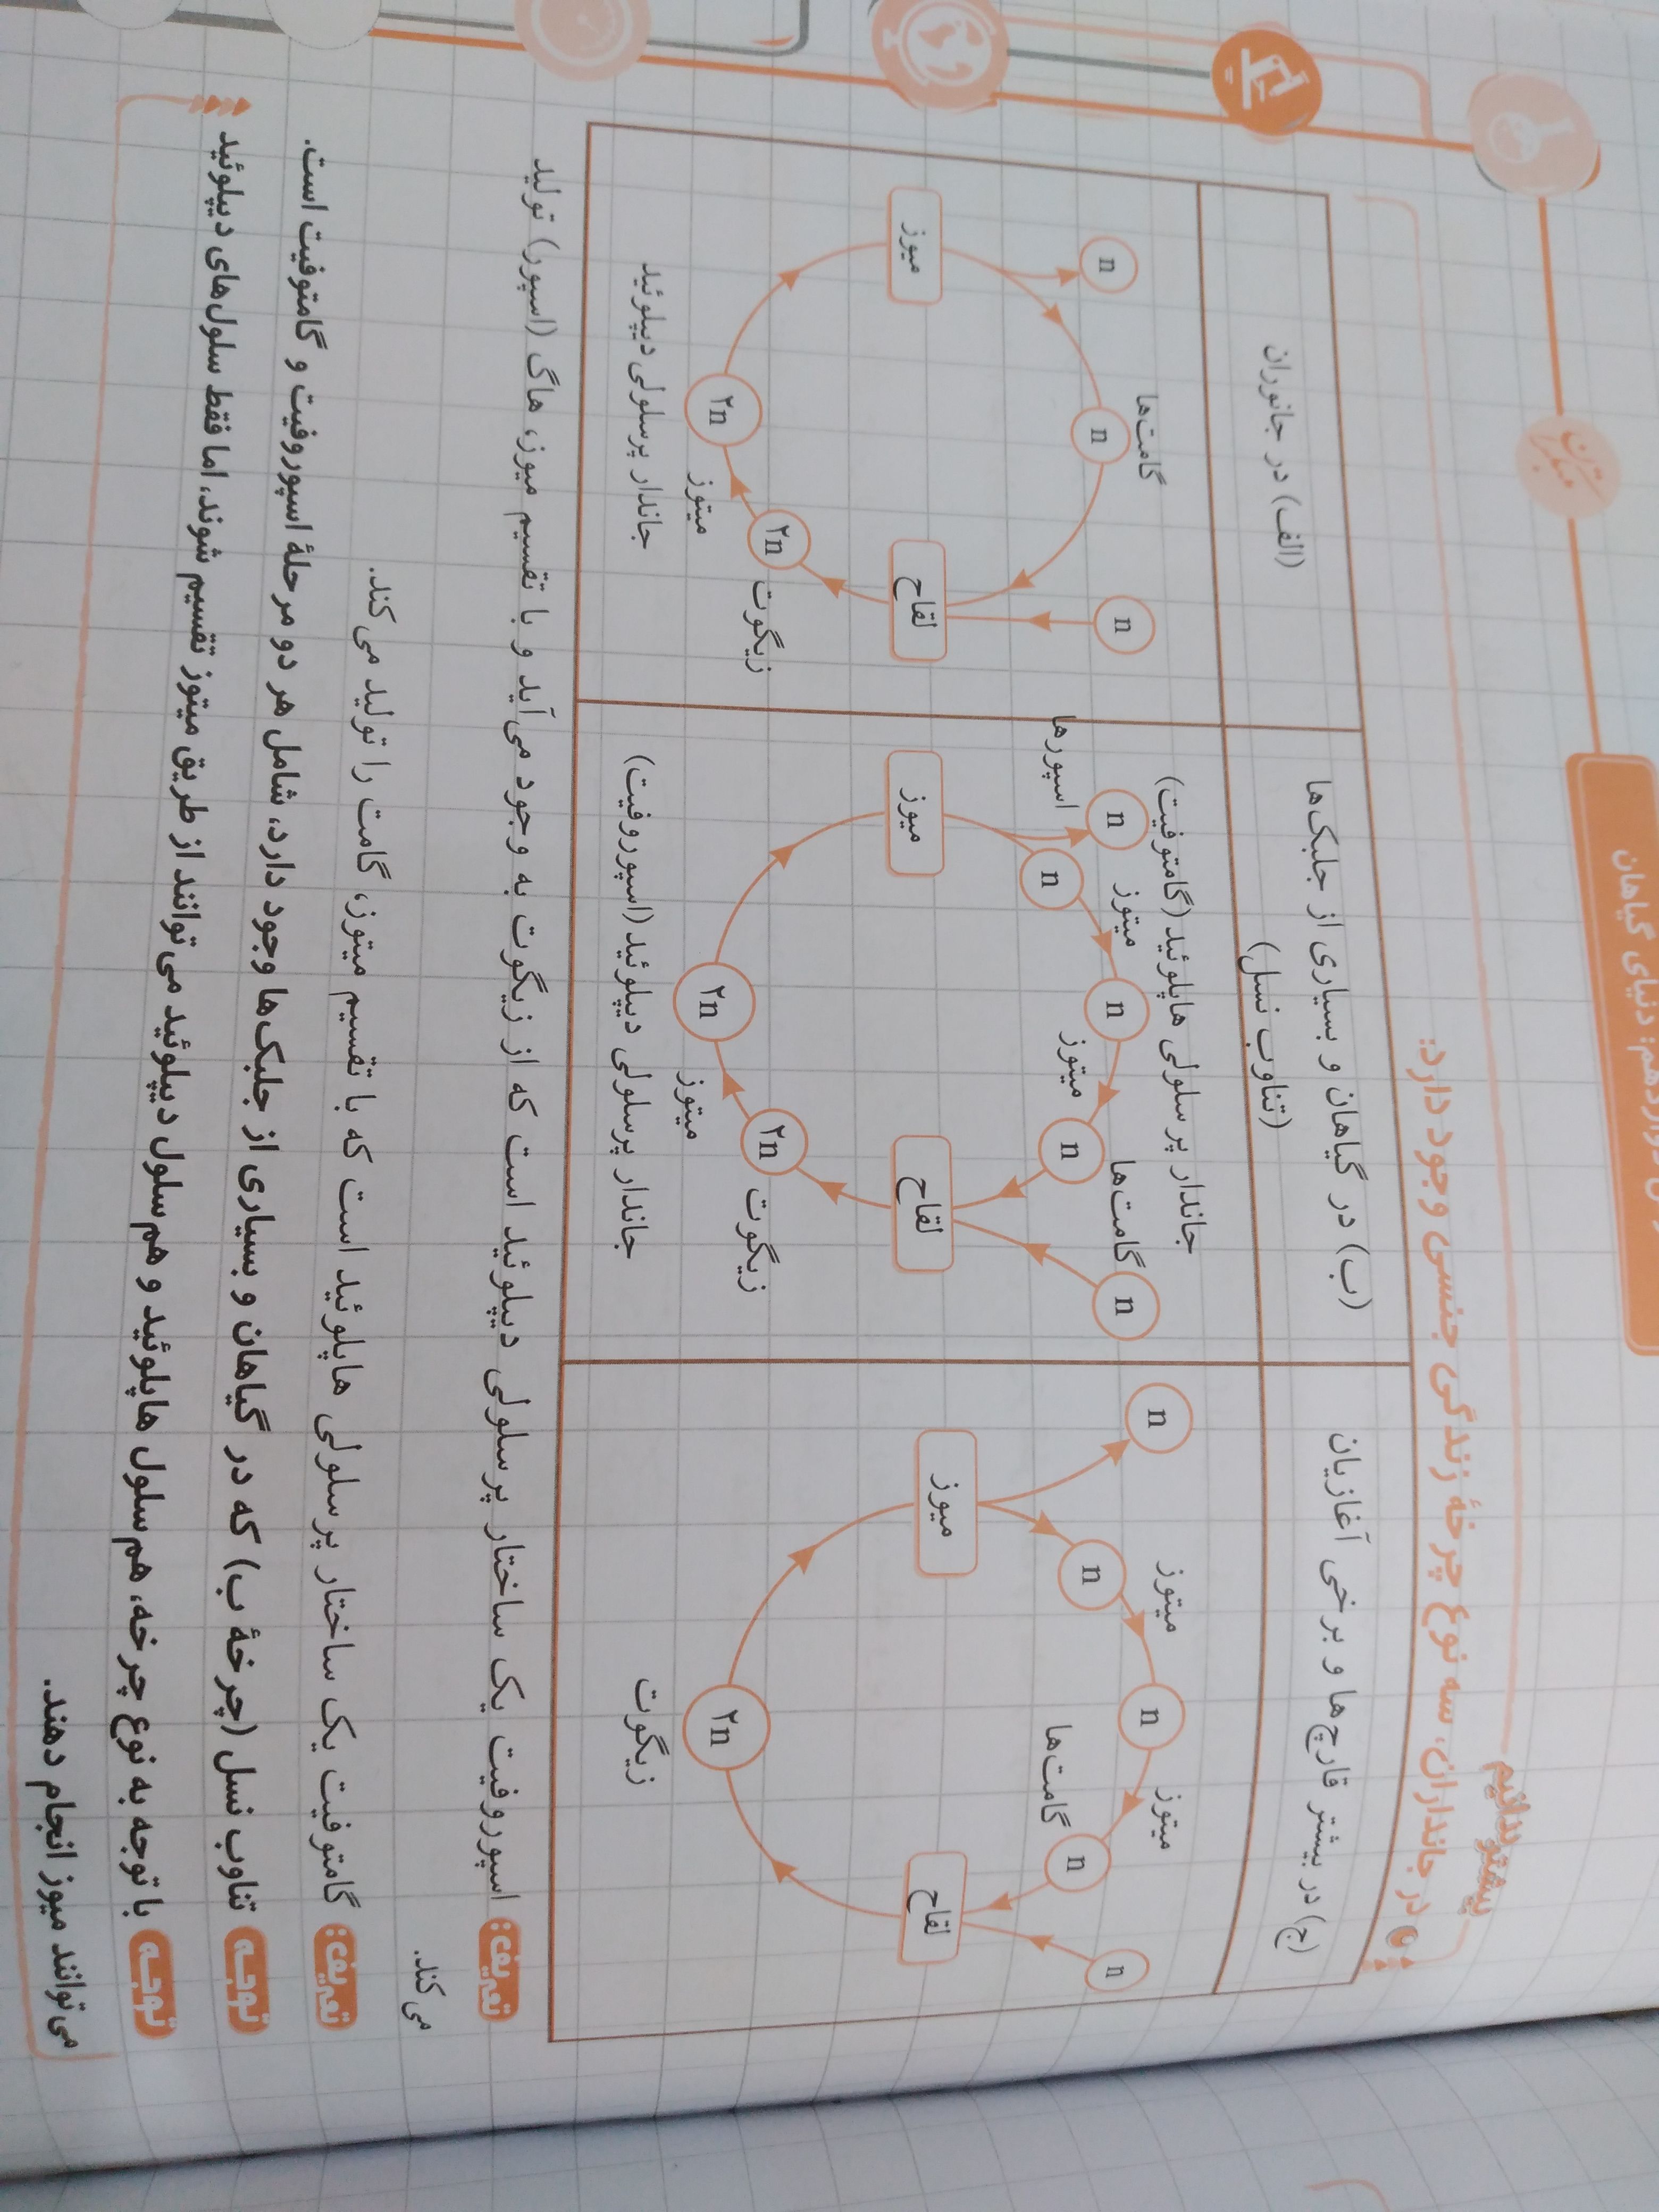 دنیای گیاهان
بیشتر بدانیم
در جانداران، سه نوع چرخهٔ زندگی جنسی وجود دارد:
(ج) در بیشتر قارچ‌ها و برخی آغازیان
(ب) در گیاهان و بسیاری از جلبک‌ها
(تناوب نسل)
(الف) در جانوران
n
میوز
n
میتوز
n
میتوز
گامت‌ها
n
n
لقاح
۲n
زیگوت
جاندار پرسلولی هاپلوئید (گامتوفیت)
اسپورها
n
n
میتوز
n
میتوز
n
گامت‌ها
n
میوز
لقاح
۲n
میتوز
۲n
زیگوت
جاندار پرسلولی دیپلوئید (اسپوروفیت)
گامت‌ها
n
n
n
میوز
لقاح
۲n
میتوز
۲n
زیگوت
جاندار پرسلولی دیپلوئید
تعریف: اسپوروفیت یک ساختار پرسلولی دیپلوئید است که از زیگوت به وجود می‌آید و با تقسیم میوز، هاگ (اسپور) تولید
می‌کند.
تعریف: گامتوفیت یک ساختار پرسلولی هاپلوئید است که با تقسیم میتوز، گامت را تولید می‌کند.
توجه تناوب نسل (چرخهٔ ب) که در گیاهان و بسیاری از جلبک‌ها وجود دارد، شامل هر دو مرحلهٔ اسپوروفیت و گامتوفیت است.
توجه با توجه به نوع چرخه، هم سلول هاپلوئید و هم سلول دیپلوئید می‌توانند از طریق میتوز تقسیم شوند، اما فقط سلول‌های دیپلوئید
می‌توانند میوز انجام دهند.